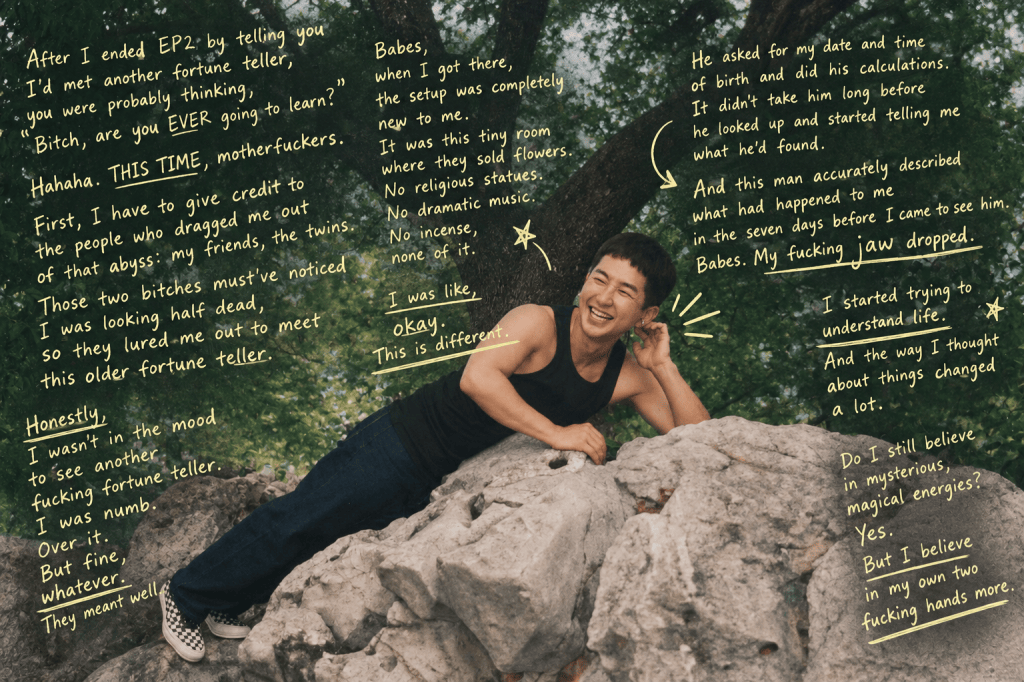 After I ended EP2 by telling you
I'd met another fortune teller,
you were probably thinking,
"Bitch, are you EVER going to learn?"
Hahaha. THIS TIME, motherfuckers.
First, I have to give credit to
the people who dragged me out
of that abyss: my friends, the twins.
Those two bitches must've noticed
I was looking half dead,
so they lured me out to meet
this older fortune teller.
Honestly,
I wasn't in the mood
to see another
fucking fortune teller.
I was numb.
Over it.
But fine,
whatever.
They meant well.
Babes,
when I got there,
the setup was completely
new to me.
It was this tiny room
where they sold flowers.
No religious statues.
No dramatic music.
No incense,
none of it.
I was like,
okay.
This is different.
He asked for my date and time
of birth and did his calculations.
It didn't take him long before
he looked up and started telling me
what he'd found.
And this man accurately described
what had happened to me
in the seven days before I came to see him.
Babes. My fucking jaw dropped.
I started trying to
understand life.
And the way I thought
about things changed
a lot.
Do I still believe
in mysterious,
magical energies?
Yes.
But I believe
in my own two
fucking hands more.